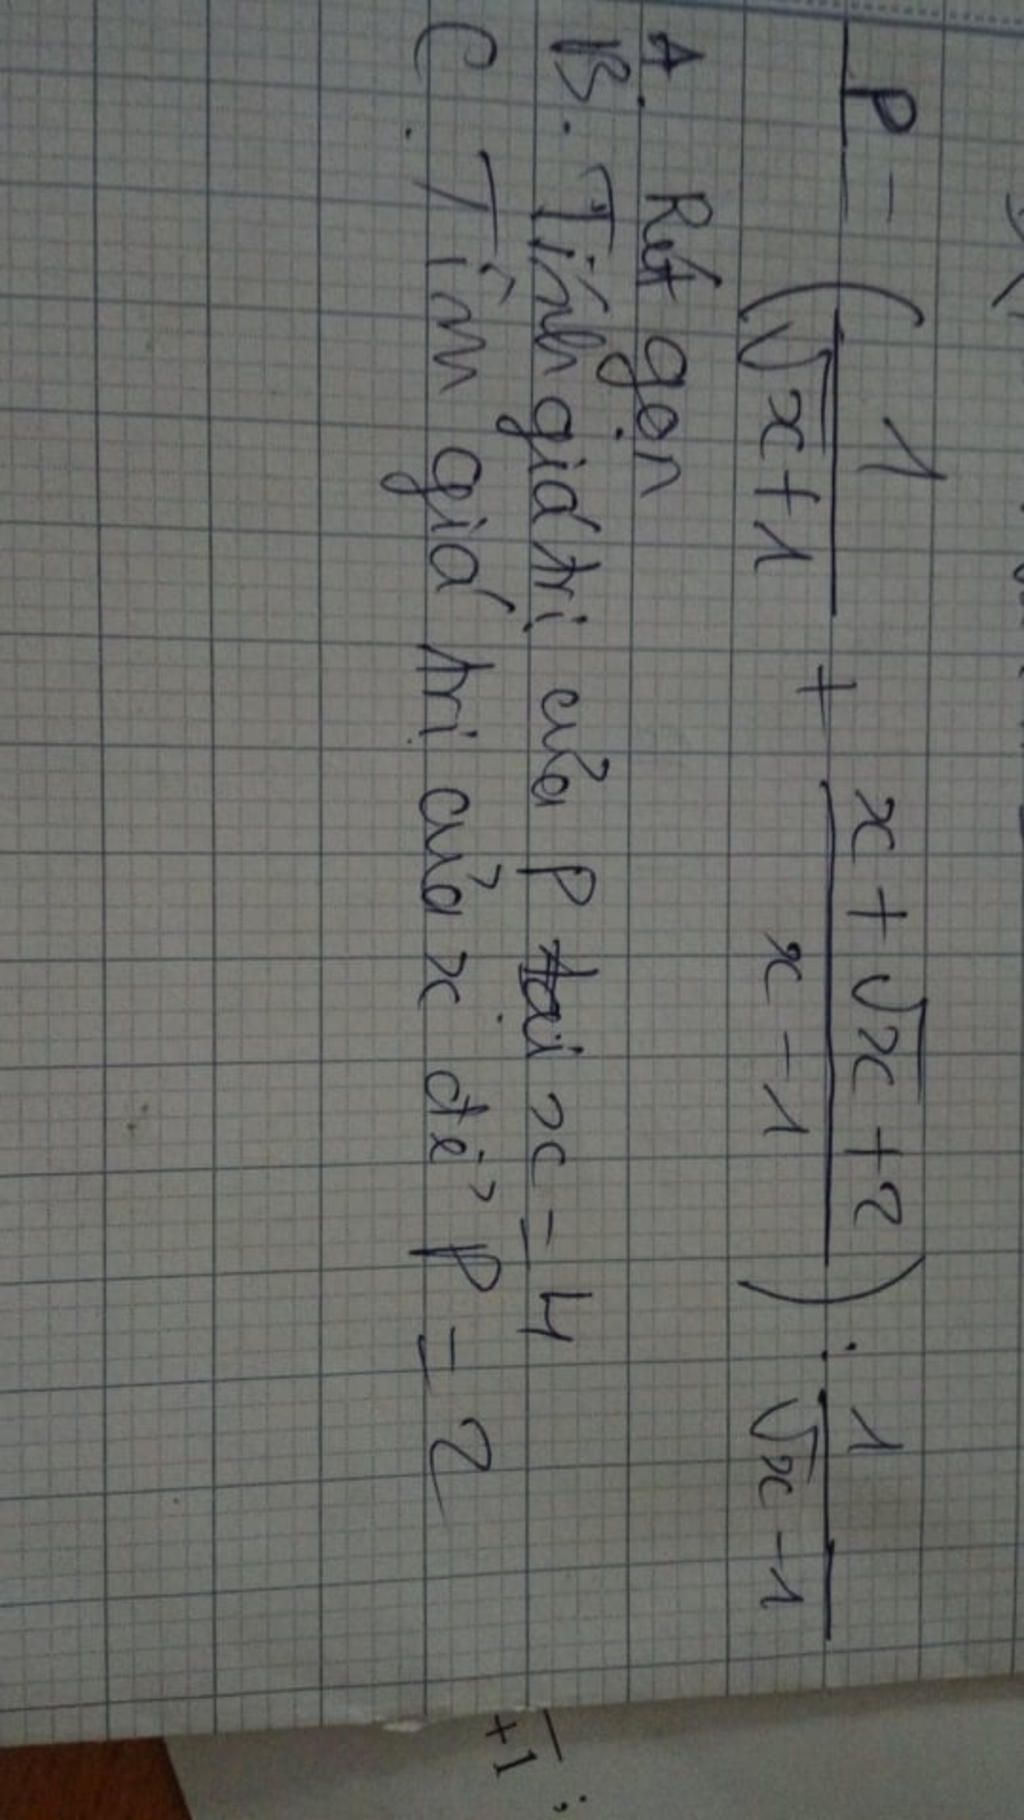 P = ( 1/(√x+1) + (x+√x+2)/(x-1) ) : 1/(√x-1)
A. Rút gọn
B. Tính giá trị của P tại x = 4
C. Tìm giá trị của x để P = 2
+1 ;